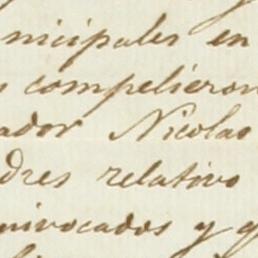 nicipales en
s compelieron
ador Nicolas
dres relativo
nivocados y q